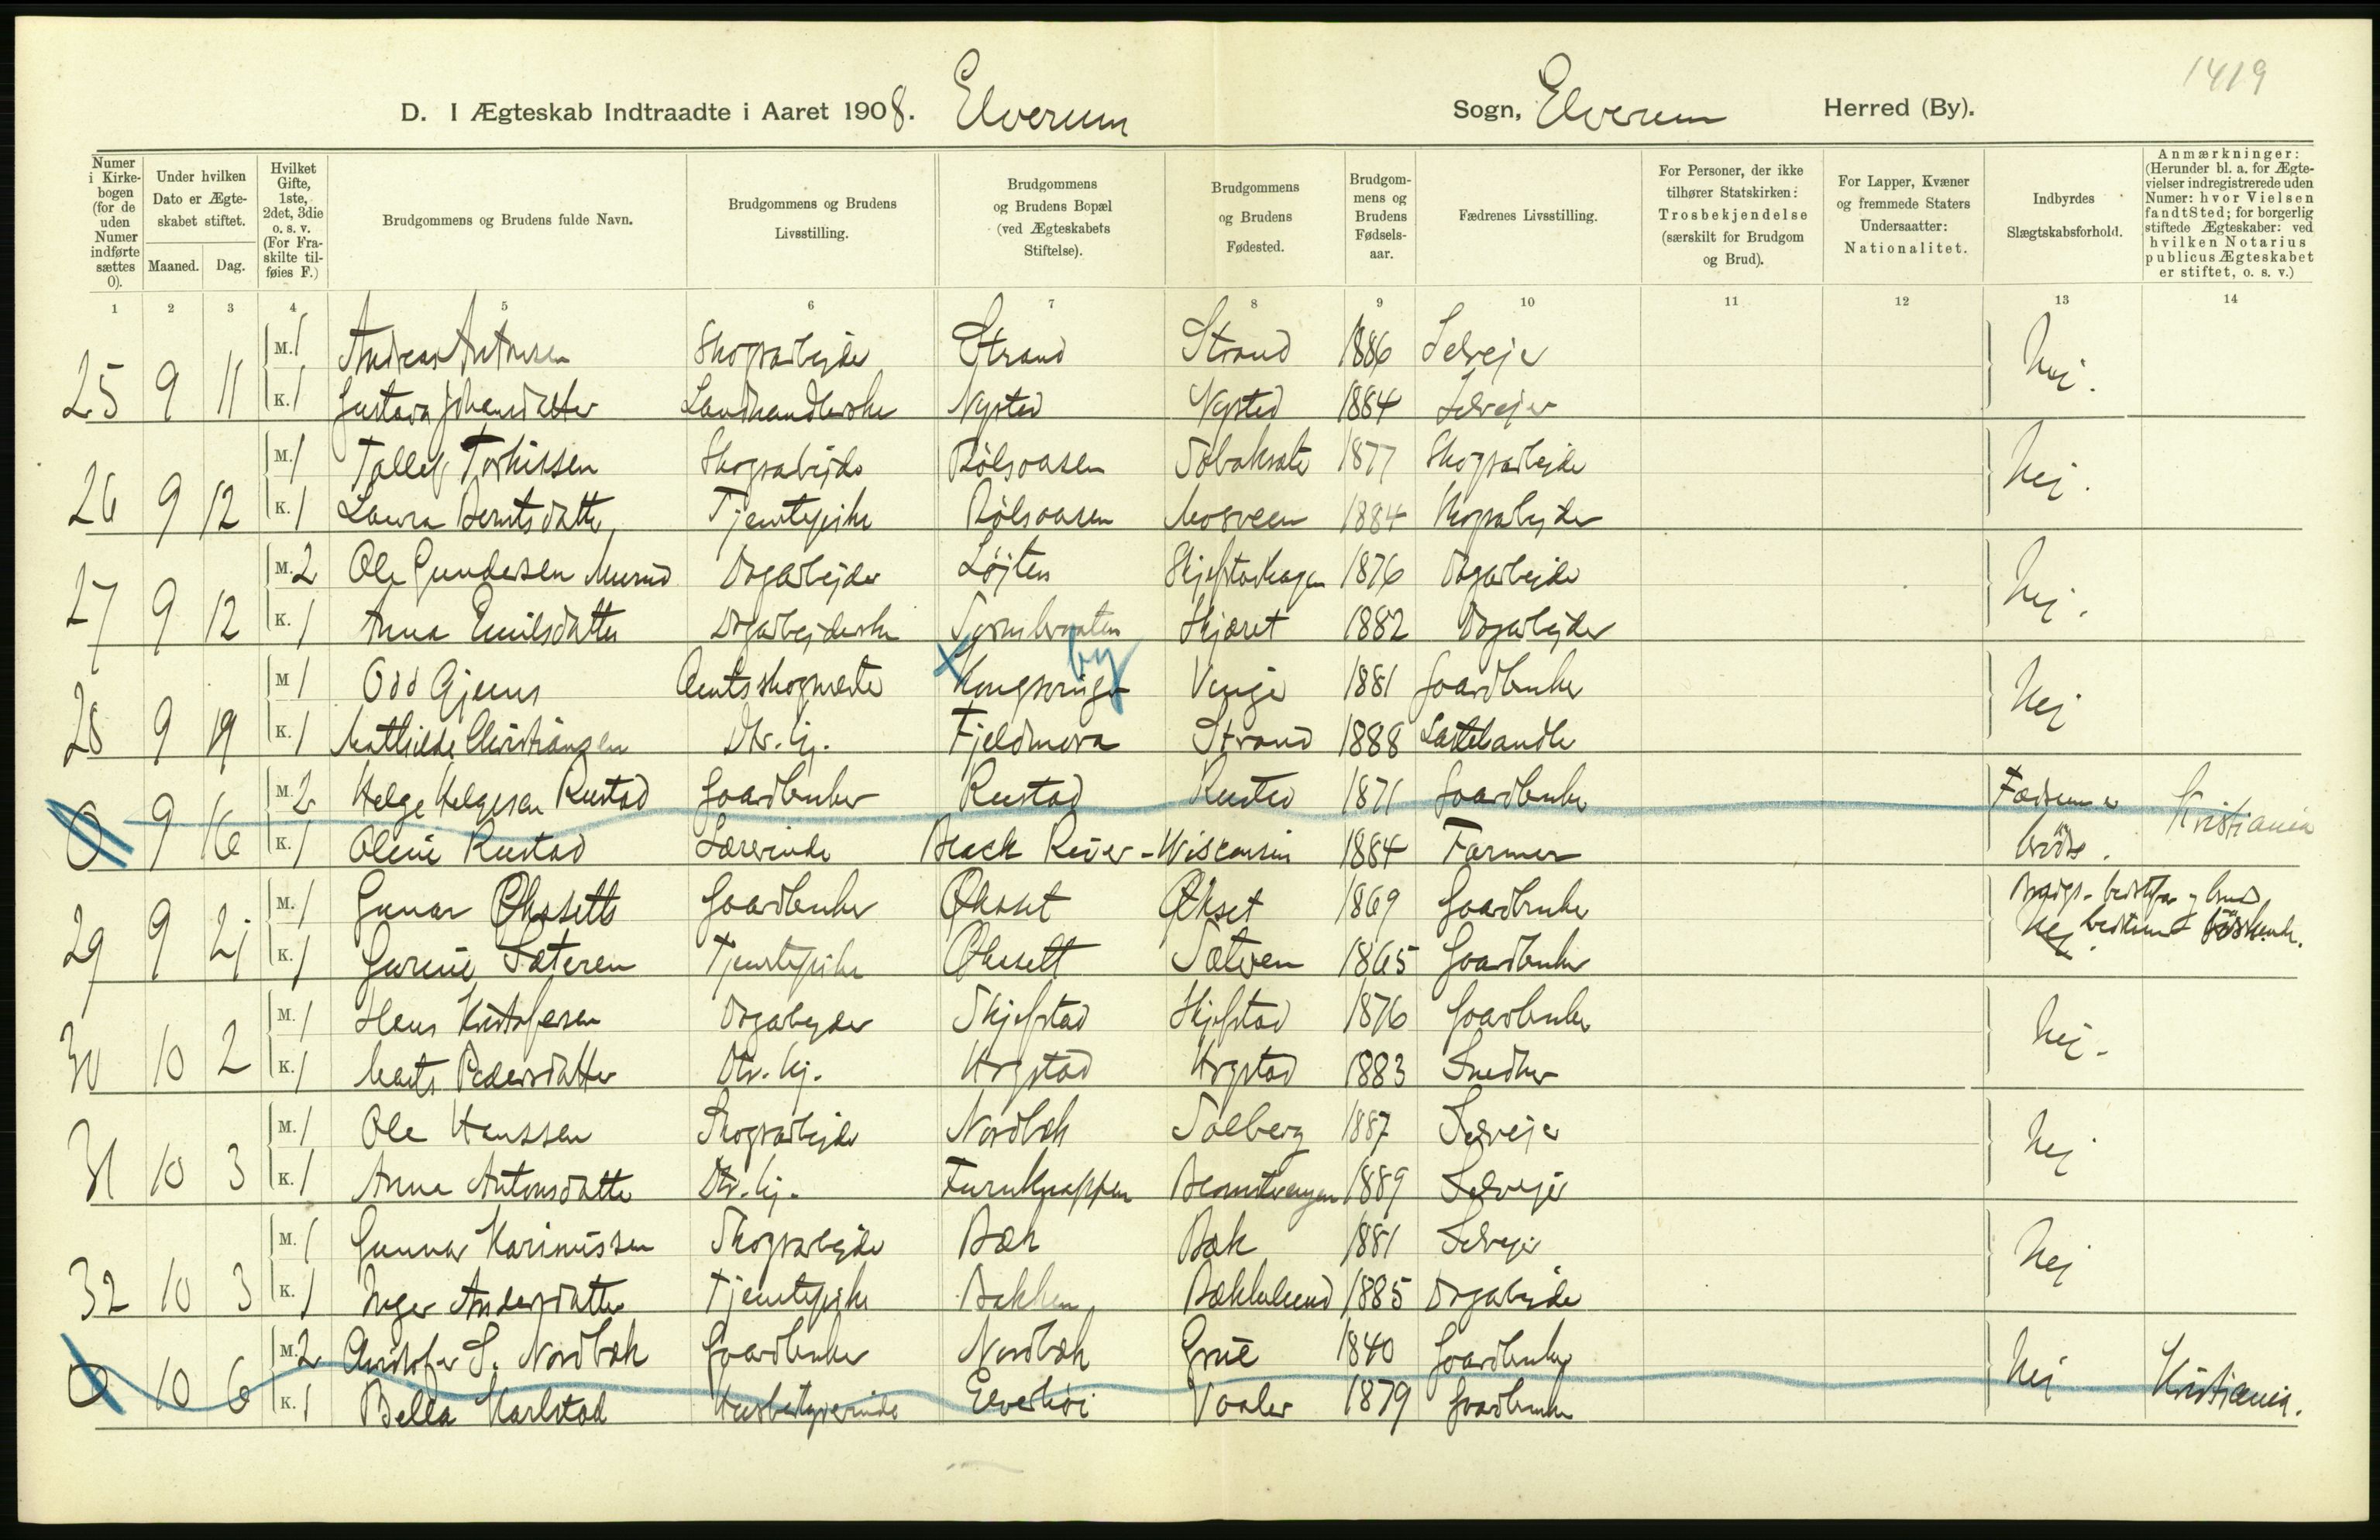 1419
D. I Ægteskab Indtraadte i Aaret 1908. Elverum Sogn, Elverum Herred (By).
Numer i Kirkebogen (for de uden Numer indførte sættes 0).
Under hvilken Dato er Ægteskabet stiftet.
Maaned. Dag.
Hvilket Gifte, 1ste, 2det, 3die o. s. v. (For Fraskilte tilføies F.)
Brudgommens og Brudens fulde Navn.
Brudgommens og Brudens Livsstilling.
Brudgommens og Brudens Bopæl (ved Ægteskabets Stiftelse).
Brudgommens og Brudens Fødested.
Brudgommens og Brudens Fødselsaar.
Fædrenes Livsstilling.
For Personer, der ikke tilhører Statskirken: Trosbekjendelse (særskilt for Brudgom og Brud).
For Lapper, Kvæner og fremmede Staters Undersaatter: Nationalitet.
Indbyrdes Slægtskabsforhold.
Anmærkninger: (Herunder bl. a. for Ægtevielser indregistrerede uden Numer: hvor Vielsen fandt Sted; for borgerlig stiftede Ægteskaber: ved hvilken Notarius publicus Ægteskabet er stiftet, o. s. v.)
1 2 3 4 5 6 7 8 9 10 11 12 13 14
M. 1 Andreas Antonsen Skogsarbejder Strand Strand 1886 Selvejer
25 9 11 K. 1 Gustava Johansdatter Landhandlerske Nysted Nysted 1884 Selvejer Nej.
M. 1 Tollef Torkissen Skogsarbejder Rølsaasen 1877 Skogsarbejder
26 9 12 K. 1 Laura Berntsdatter, Tjenstepike Rølsaasen Mosveen 1884 Skogsarbejder Nej.
M. 2 Ole Gundersen Dagarbejder Løjten 1876 Dagarbejder
27 9 12 K. 1 Anna Emilsdatter Dagarbejderske Skjæret 1882 Dagarbejder Nej.
M 1 Odd Gjems Amtsskogmester Kongsvinger by Venge 1881 Gaardbruker
28 9 19 K. 1 Mathilde Christiansen Dtr. hj. Fjeldmora Strand 1888 Nej
M. 2 Helge Helgesen Rustad Gaardbruker Rustad Rustad 1871 Gaardbruker
0 9 16 K. 1 Oline Rustad Lærerinde Black River - Wisconsin 1884 Farmer Fædrene er brødre. Kristiania
M. 1 Gunar Øksetts Gaardbruker Økset Økset 1869 Gaardbruker
29 9 21 K. 1 Gurine Sæteren Tjenstepike Øksett Sætren 1865 Gaardbruker Nej.
M. 1 Hans Kristofersen Dagarbejder Skjefstad Skjefstad 1876 Gaardbruker
30 10 2 K. 1 Marte Pedersdatter Dtr. hj. Hegstad Hegstad 1883 Snedker Nej.
M. 1 Ole Hanssen Skogsarbejder Nordbæk Solberg 1887 Selvejer
31 10 3 K. 1 Anna Antonsdatter Dtr. hj. Furuknappen 1889 Selvejer Nej
M. 1 Gunnar Karinussen Skogsarbejder Bæk Bæk 1881 Selvejer
32 10 3 K. 1 Inger Andersdatter Tjenstepike Bakken, Bækkelund 1885 Dagarbejder Nej
M. 2 Christofer S. Nordbæk Gaardbruker Nordbæk Grue 1840 Gaardbruker
0 10 6 K. 1 Bella Karlstad Husbestyrerinde Elverhøi Vaaler 1879 Gaardbruker Nej Kristiania.